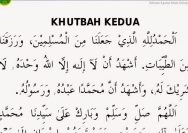 KHUTBAH KEDUA
اَلْحَمْدُلِلَّهِ الَّذِيْ جَعَلَنَا مِنَ الْمُسْلِمِيْنَ، وَرَزَقَنَا
الطَّيِّبَاتِ. أَشْهَدُ أَنْ لَا إِلَهَ إِلَّا اللهُ وَحْدَهُ لَا
شَرِيْكَ لَهُ، وَأَشْهَدُ أَنَّ مُحَمَّدًا عَبْدُهُ وَرَسُوْلُهُ.
اللَّهُمَّ صَلِّ وَسَلِّمْ وَبَارِكْ عَلَى سَيِّدِنَا